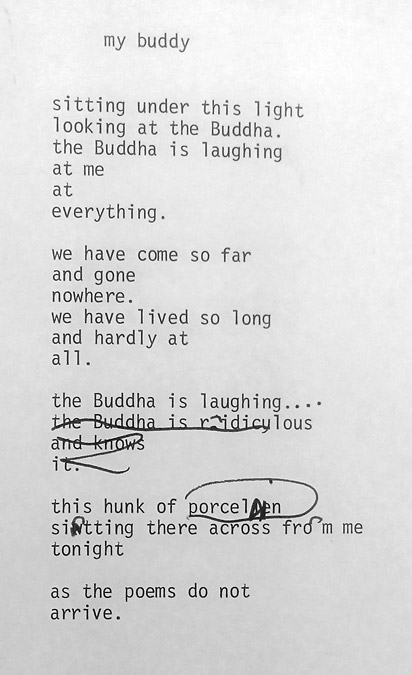 my buddy
sitting under this light
looking at the Buddha.
the Buddha is laughing
at me
at
everything.
we have come so far
and gone
nowhere.
we have lived so long
and hardly at
all.
the Buddha is laughing....
the Buddha is ridiculous
and knows
it.
this hunk of
sitting there across from me
tonight
as the poems do not
arrive.